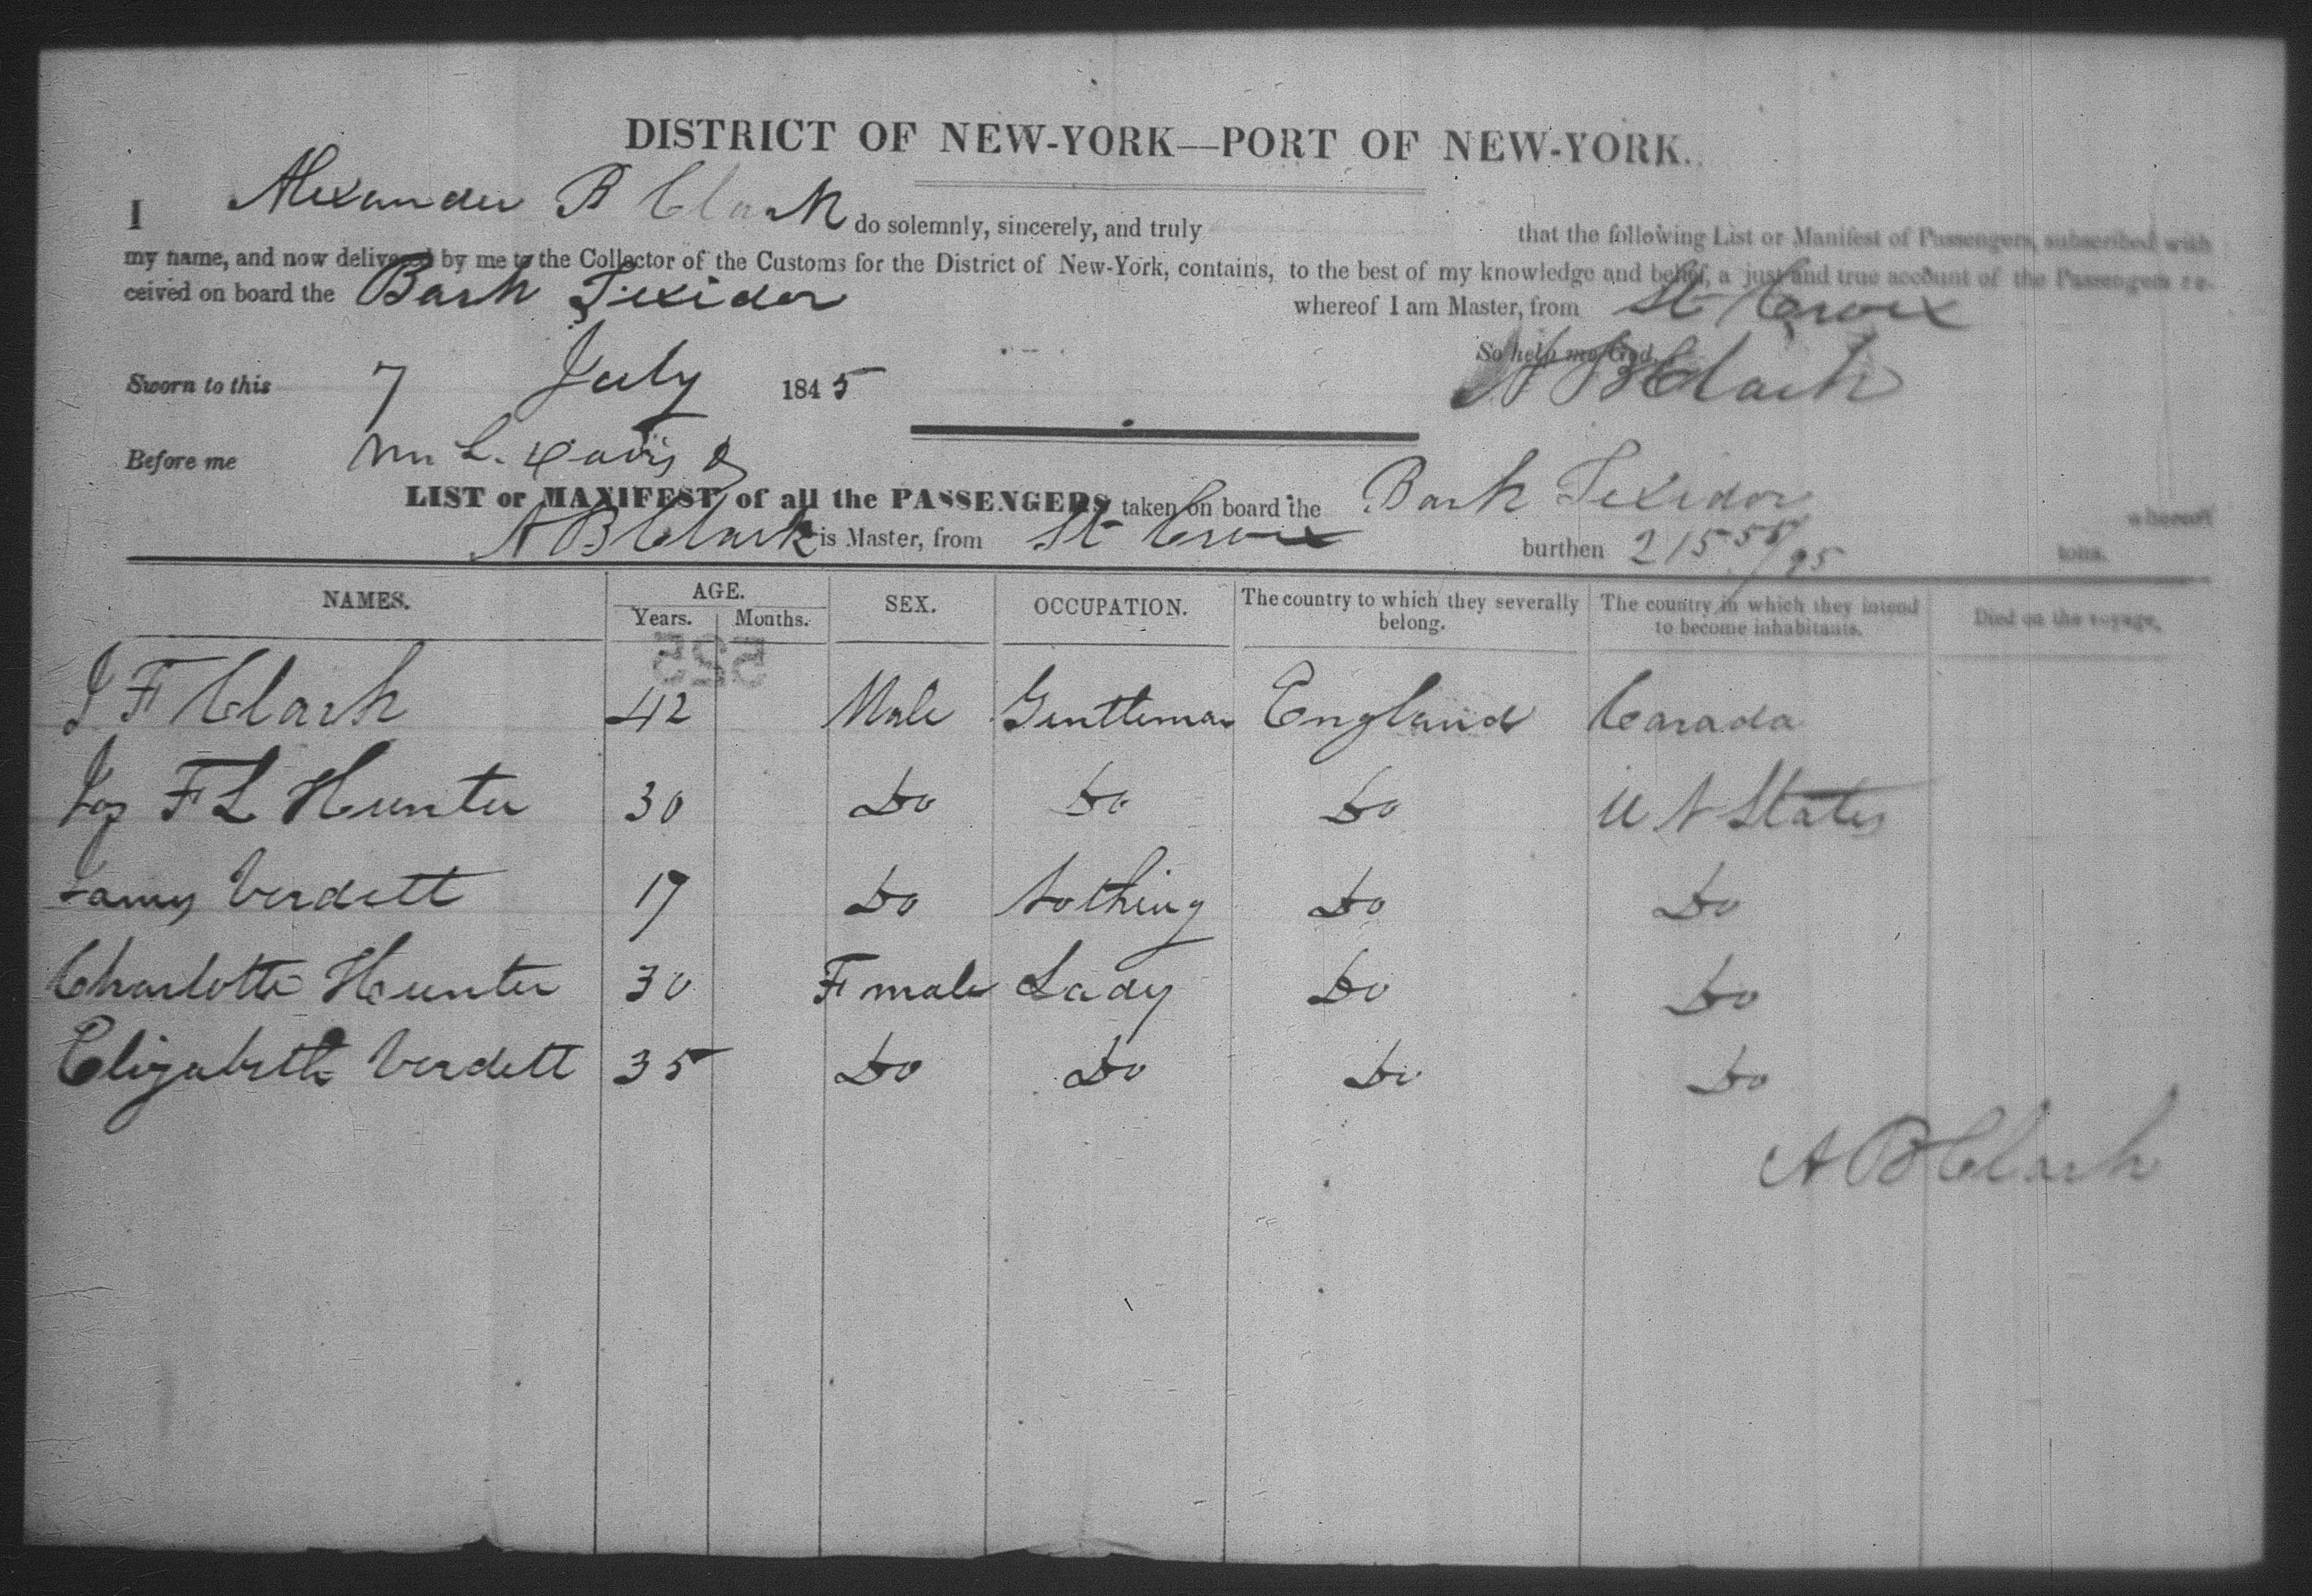 DISTRICT OF NEW-YORK—PORT OF NEW-YORK.
I Alexander B Clark do solemnly, sincerely, and truly that the following List or Manifest of Passengers, subscribed with
my name, and now delivered by me to the Collector of the Customs for the District of New-York, contains, to the best of my knowledge and belief, a just and true account of the Passengers re-
ceived on board the Bark Texidor whereof I am Master, from St Croix
So help me God.
Sworn to this 7 July 1845 A B Clark
Before me L. Davis
LIST or MANIFEST of all the PASSENGERS taken on board the Bark Texidor whereof
A B Clark is Master, from St Croix burthen 215 55/95 tons.
NAMES. AGE. Years. Months. SEX. OCCUPATION. The country to which they severally belong. The country in which they intend to become inhabitants. Died on the voyage.
525
J F Clark 42 Male Gentleman England Canada
Jos F L Hunter 30 Do Do Do U N States
James Verdett 17 Do Nothing Do Do
Charlotte Hunter 30 Fmale Lady Do Do
Elizabeth Verdett 35 Do Do Do Do
A B Clark